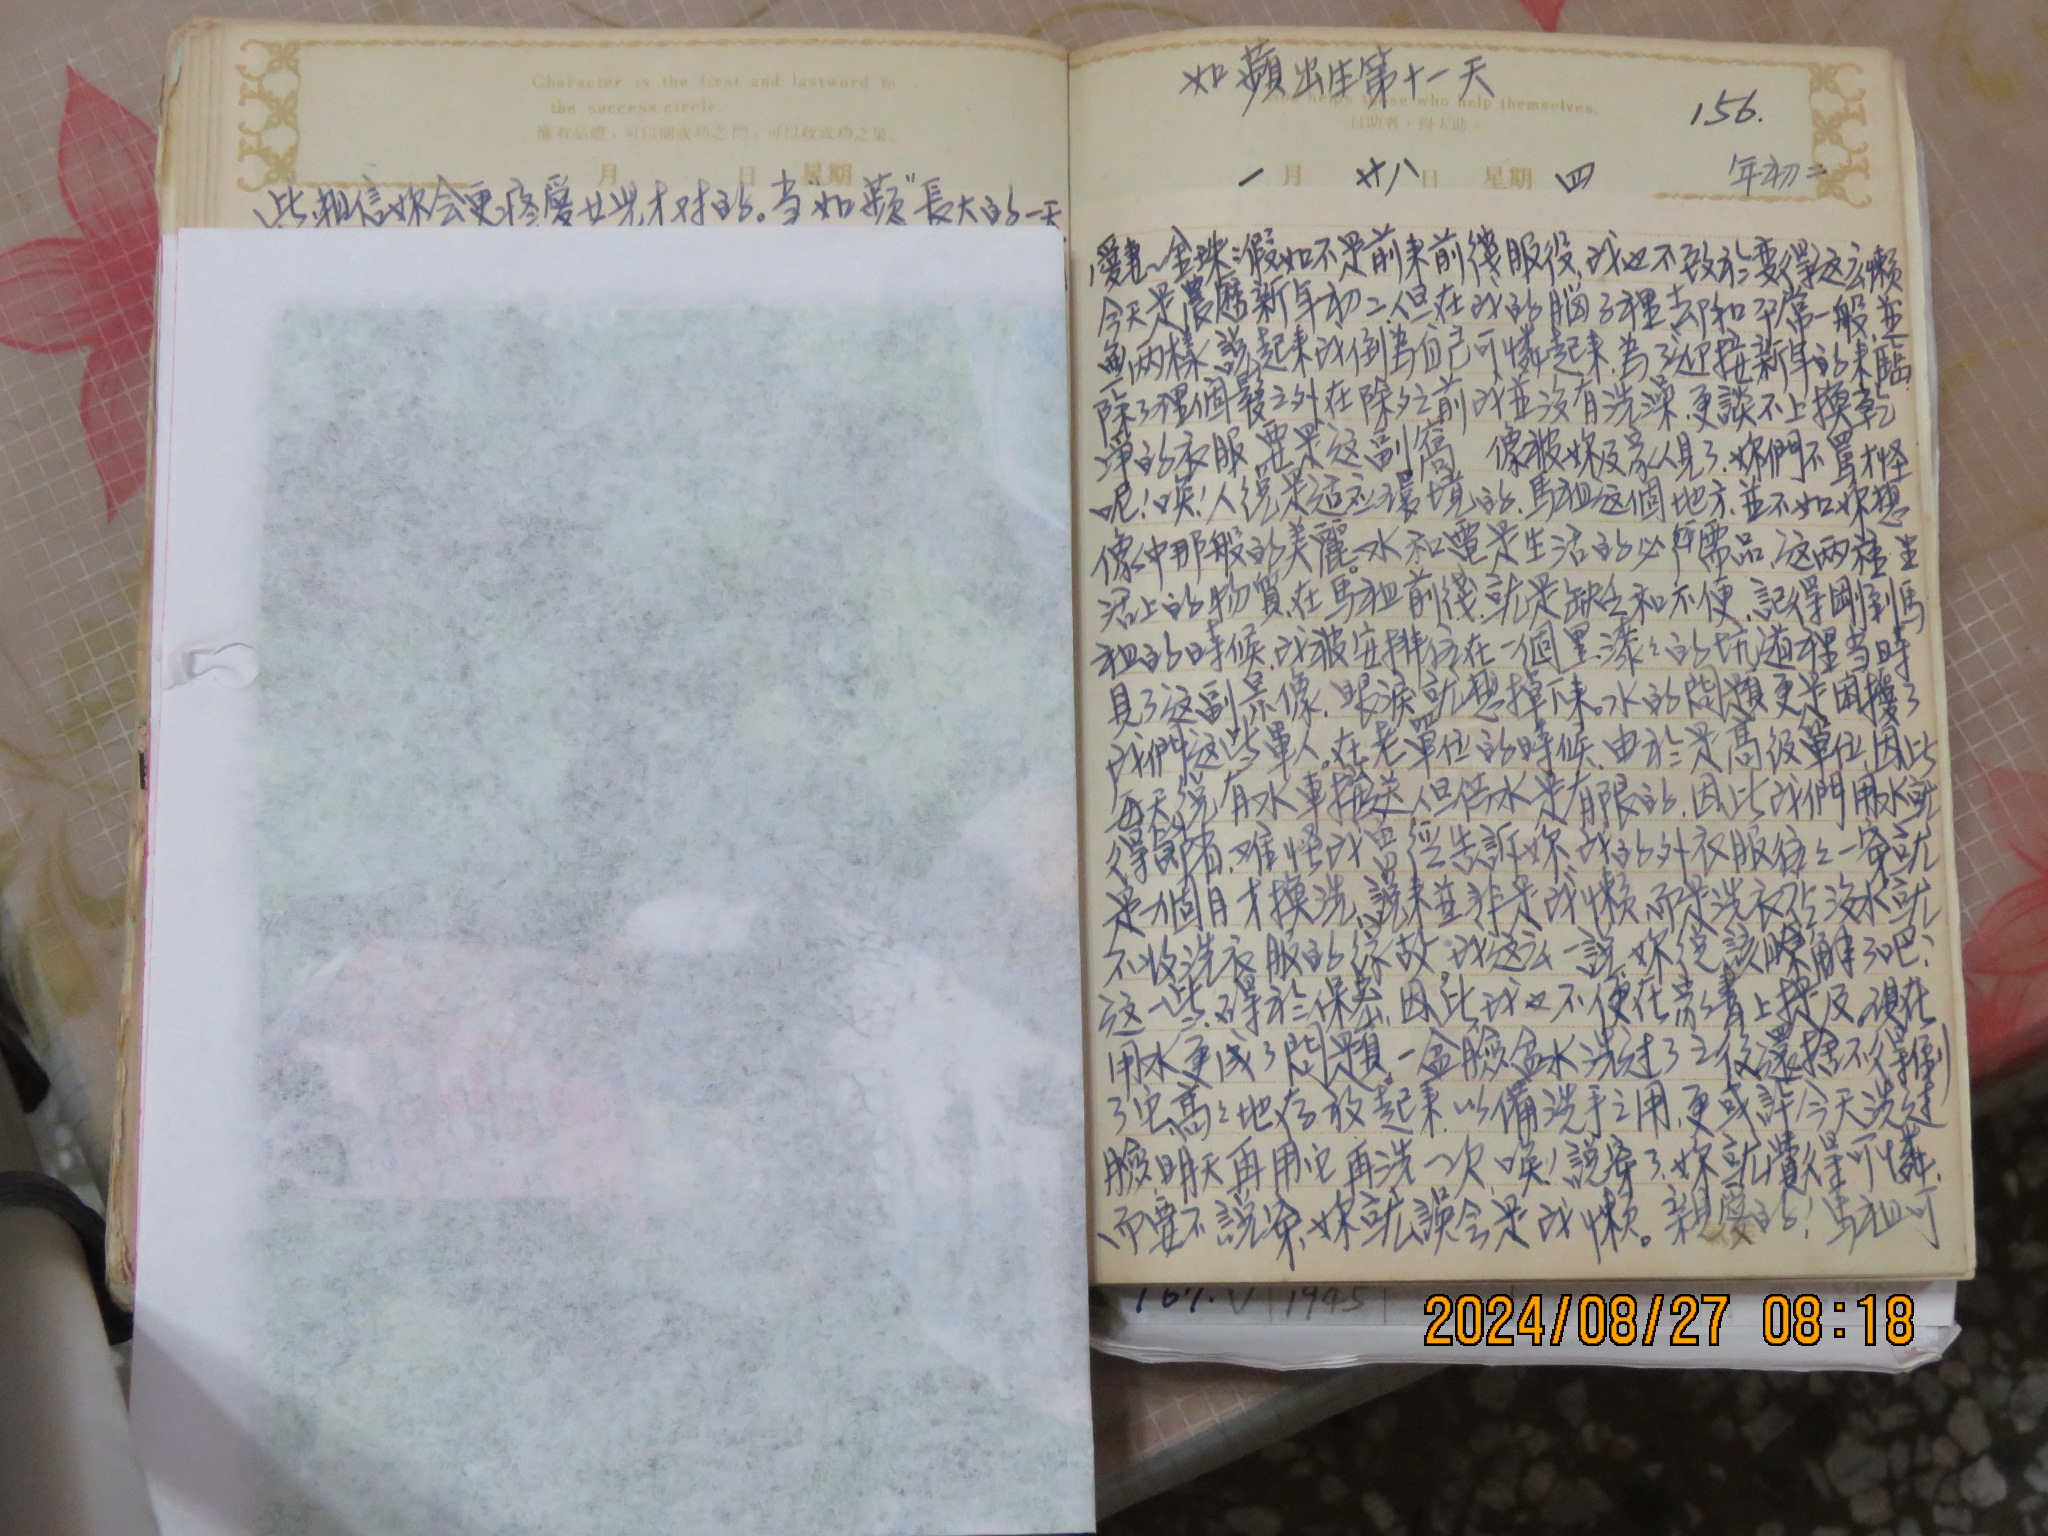 Character is the first and lastword in
the success circle.
唯有品德,可以開成功之門,可以收成功之果。
月 日 星期
此,相信妳會更疼愛女兒才对的。当"如蘋"長大的一天
如蘋出生第十一天
helps those who help themselves.
自助者,得天助。
156.
一月廿八日 星期四 年初二
愛妻~金珠:假如不是前來前綫服役,我也不致於变得这么懶
今天是農曆新年初二,但在我的腦子裡却和平常一般,並
無两樣,說起來我倒為自己可憐起來,為了迎接新年的來臨
除了理個髮之外在除夕之前我並沒有洗澡,更談不上換乾
淨的衣服,要是这副窩 像被妳及家人見了,妳們不罵才怪
呢!唉!人総是适应環境的,馬祖这個地方,並不如妳想
像中那般的美麗。水和電是生活的必需品,这两種生
活上的物質,在馬祖前綫,就是缺乏和不便,記得剛到馬
祖的時候,我被安排住在一個黑漆々的坑道裡当時
見了这副景像,眼淚就想掉下來。水的問題更是困擾了
我們这些軍人。在老單位的時候,由於是高级單位,因此
每天総有水車輸送,但供水是有限的,因此我們用水就
得節省,难怪我曾經告訴妳,我的外衣服往々一穿就
是一個月才換洗,說來並非是我懶,而是洗衣公沒水就
不收洗衣服的緣故,我这么一說,妳総該瞭解了吧?
这一些,碍於保密,因此我也不便在家書上提及。現在
用水更成了問題,一盆臉盆水洗过了之後還捨不得倒
了它,高々地存放起來,以備洗手之用,更或許今天洗过
臉明天再用它再洗一次,唉!說穿了,妳就覺得可憐,
而要不說穿,妳就誤会是我懶。親愛的!馬祖可
167. V 1945
2024/08/27 08:18